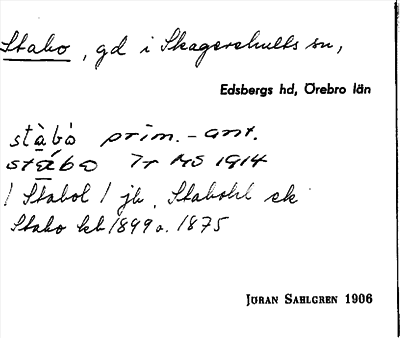 Stabo, gd i Skagershults sn,
Edsbergs hd, Örebro län
stàbò prim.-ant.
stábo Tr MS 1914
/ Stabol / jb, Stabohl ek
Stabo kb 1899 o. 1875
JÖRAN SAHLGREN 1906